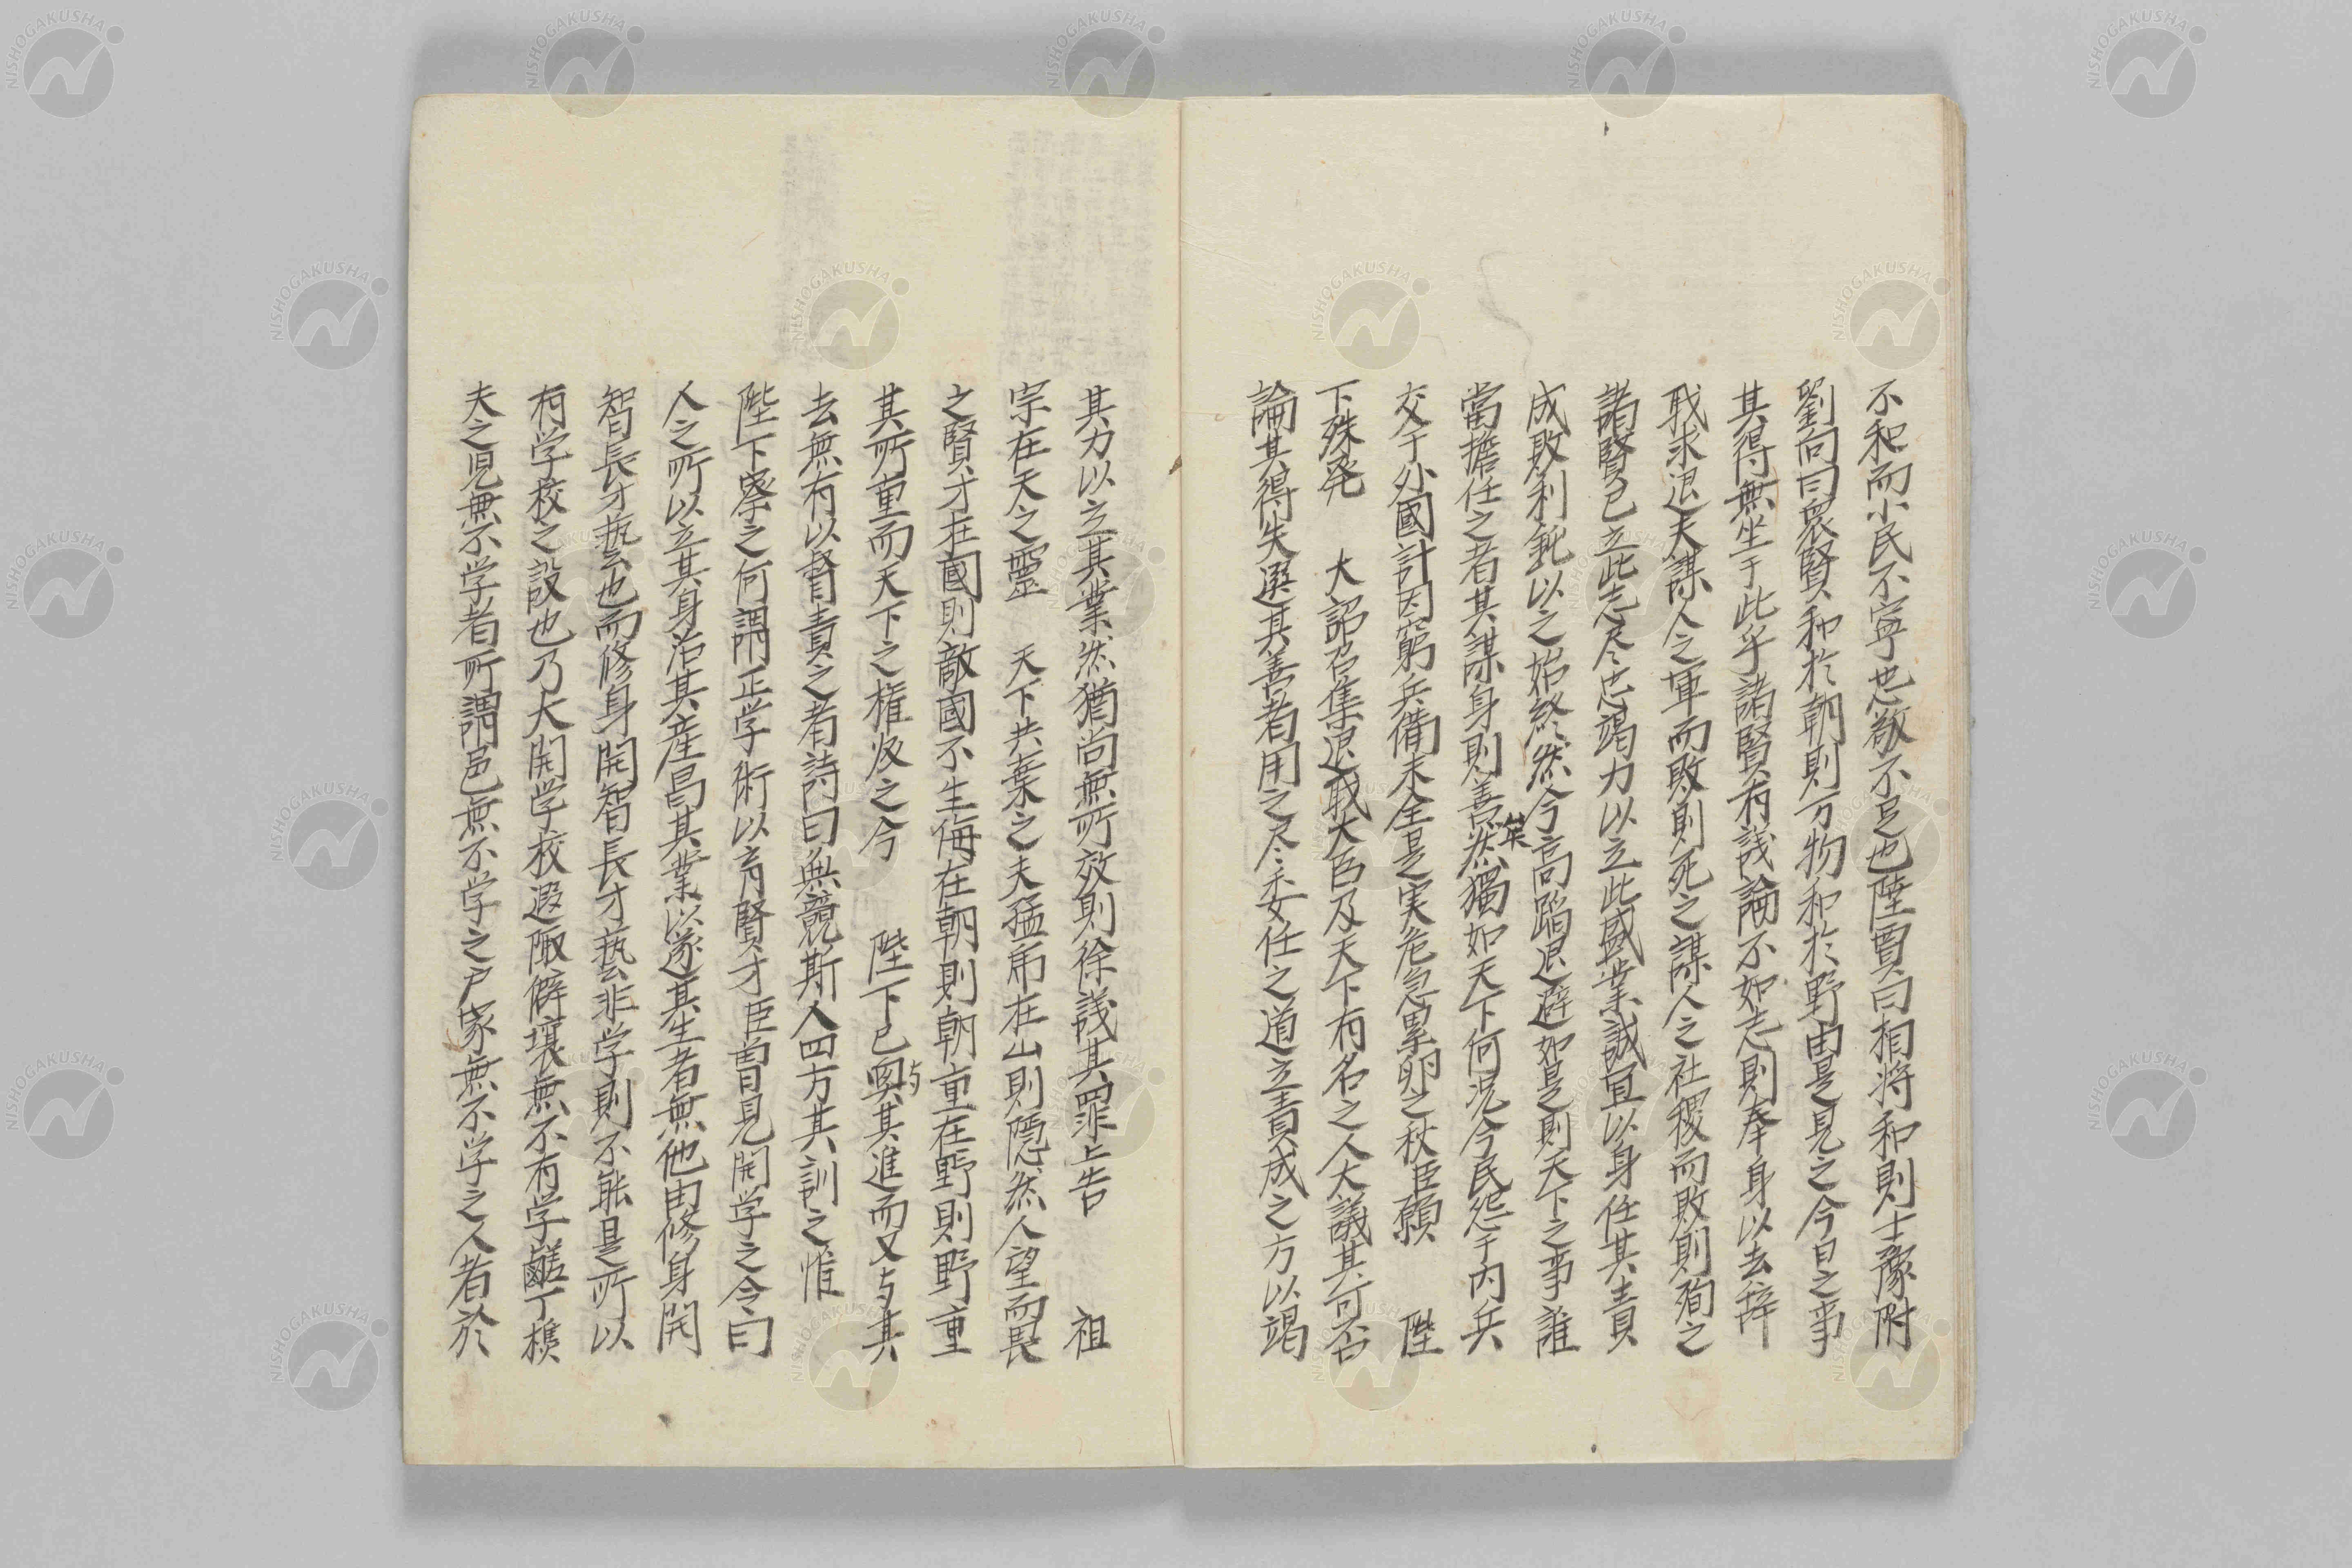 不和而小民不寧也惣敬不足也陸賈曰相将和則士豫附
劉向曰衆賢和於朝則万物和於野由是見之今日之事
其得無坐于此乎諸賢有議論不如志則奉身以去辞
職求退夫謀人之軍而敗則死之謀人之社稷而敗則殉之
諸賢已立此志尽忠竭力以立此盛業誠宜以身任其責
成敗利鈍以之始終然今高蹈退避如是則天下之事誰
當擔任之者其謀身則善矣然獨如天下何况今民怨于内兵
交于外國計困窮兵備未全是実危急累卵之秋臣願 陛
下殊発 大詔召集退職大臣及天下有名之人大議其可否
論其得失選其善者用之尽委任之道立責成之方以竭
其力以立其業然猶尚無所效則徐議其罪上告 祖
宗在天之靈 天下共棄之夫猛虎在山則隠然人望而畏
之賢才在國則敵國不生侮在朝則朝重在野則野重
其所重而天下之権帰之今 陛下已與其進而又与其
去無有以督責之者詩曰無競斯人四方其訓之惟
陛下察之何謂正学術以育賢才臣曽見開学之令曰
人之所以立其身治其産昌其業以遂其生者無他由修身開
智長才藝也而修身開智長才藝非学則不能是所以
有学校之設也乃大開学校遐陬僻壤無不有学齠丁樵
夫之児無不学者所謂邑無不学之戸家無不学之人者於
NISHOGAKUSHA